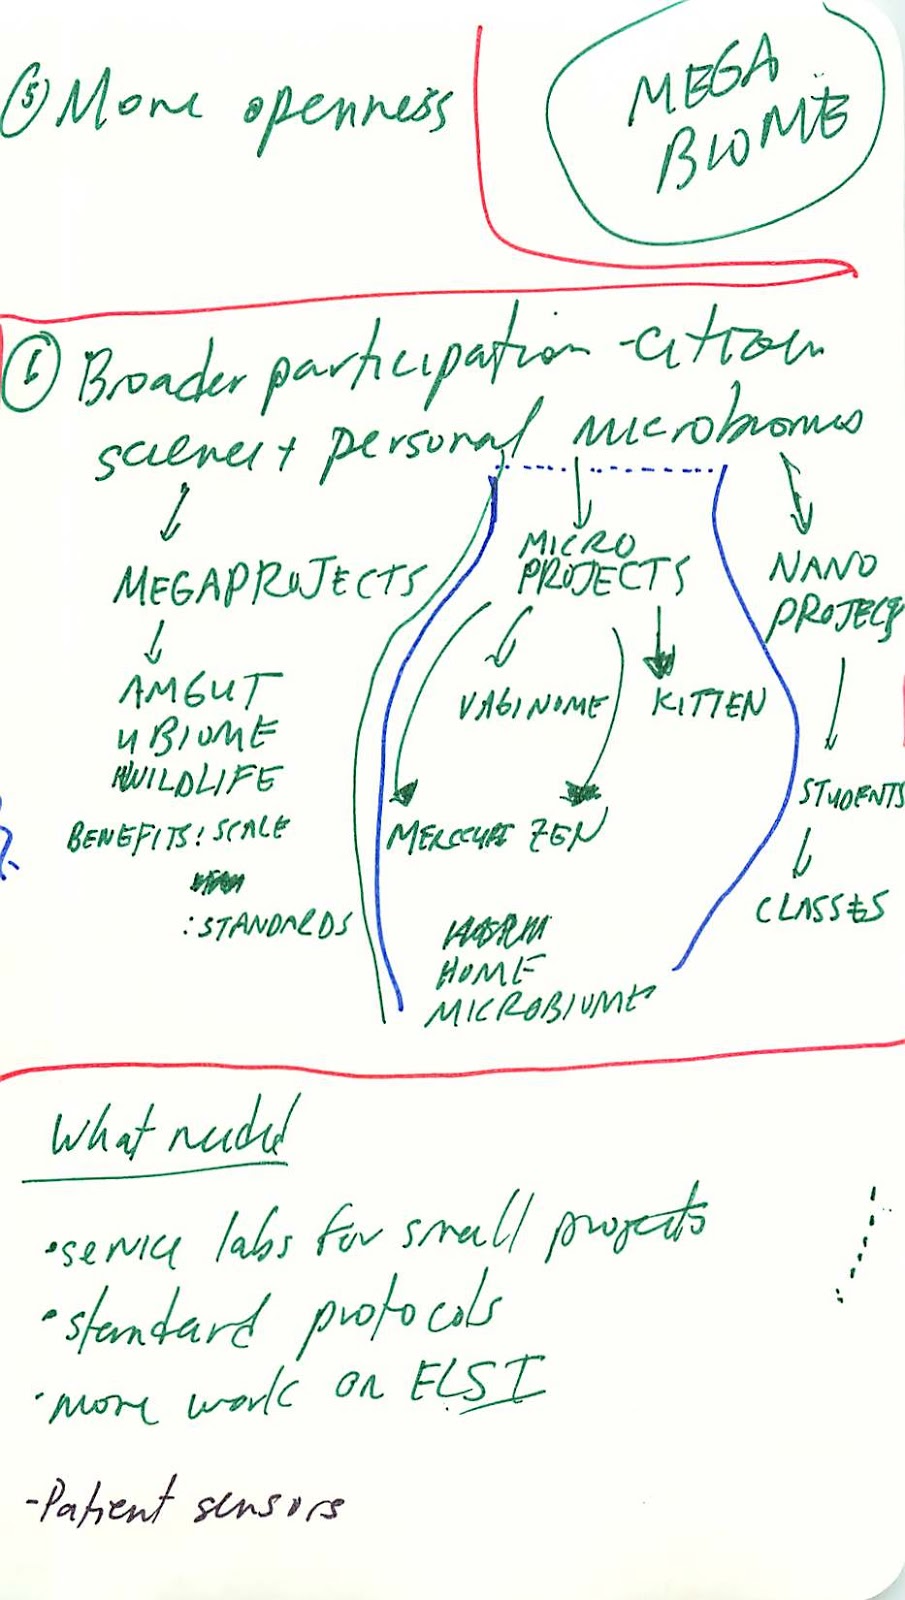 ⑤ More openness
MEGA
BIOME
⑥ Broader participation - citizen
science + personal microbiomes
MEGAPROJECTS
AMGUT
UBIOME
WILDLIFE
BENEFITS: SCALE
: STANDARDS
MICRO
PROJECTS
VAGINOME
KITTEN
MERCCURI ZEN
HOME
MICROBIOME
NANO
PROJECTS
STUDENTS
CLASSES
What needed
• service labs for small projects
• standard protocols
• more work on ELSI
- Patient sensors